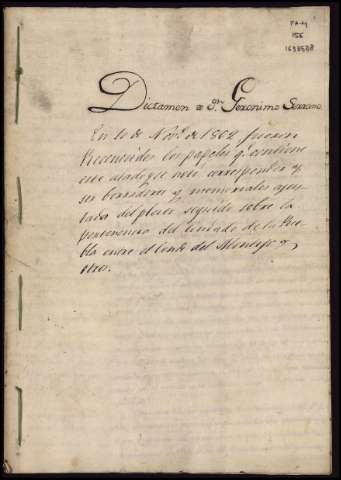 FA-M
156
Dictamen de Dn Geronimo Serrano
En 10 de Nove de 1802 fueron
Reconocidos los papeles q contiene
este atado y se notó corresponder y
ser borradores y memoriales ajus
tados del pleito seguido sobre la
pertenencia del Condado de la Pue
bla entre el Conde del Montijo y
otros.